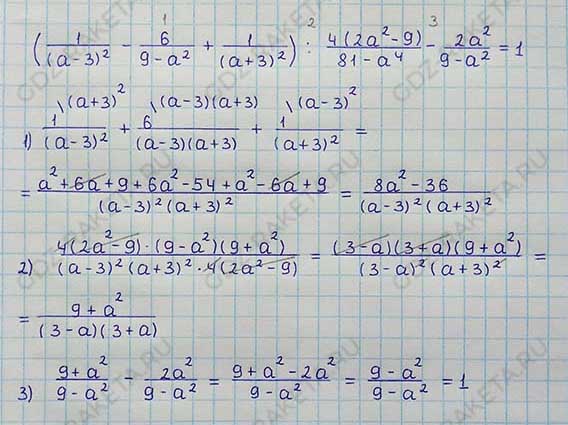 1 2 3
(1/(a-3)² - 6/(9-a²) + 1/(a+3)²) : 4(2a²-9)/(81-a⁴) - 2a²/(9-a²) = 1
1) 1\(a+3)²/(a-3)² + 6\(a-3)(a+3)/((a-3)(a+3)) + 1\(a-3)²/(a+3)² =
= (a²+6a+9+6a²-54+a²-6a+9)/((a-3)²(a+3)²) = (8a²-36)/((a-3)²(a+3)²)
2) (4(2a²-9)·(9-a²)(9+a²))/((a-3)²(a+3)²·4(2a²-9)) = ((3-a)(3+a)(9+a²))/((3-a)²(a+3)²) =
= (9+a²)/((3-a)(3+a))
3) (9+a²)/(9-a²) - 2a²/(9-a²) = (9+a²-2a²)/(9-a²) = (9-a²)/(9-a²) = 1
GDZ-RAKETA.RU